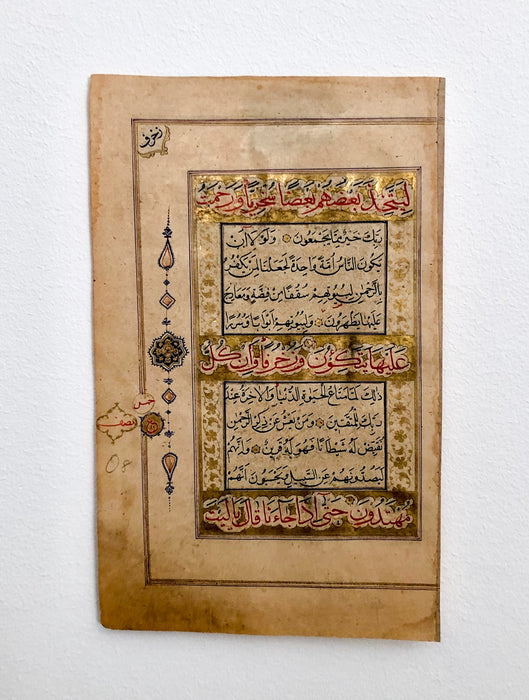 زخرف
لِيَتَّخِذَ بَعْضُهُمْ بَعْضًا سُخْرِيًّا وَرَحْمَتُ
رَبِّكَ خَيْرٌ مِمَّا يَجْمَعُونَ وَلَوْلَا أَنْ
يَكُونَ النَّاسُ أُمَّةً وَاحِدَةً لَجَعَلْنَا لِمَنْ يَكْفُرُ
بِالرَّحْمٰنِ لِبُيُوتِهِمْ سُقُفًا مِنْ فِضَّةٍ وَمَعَارِجَ
عَلَيْهَا يَظْهَرُونَ وَلِبُيُوتِهِمْ أَبْوَابًا وَسُرُرًا
عَلَيْهَا يَتَّكِؤُنَ وَزُخْرُفًا وَإِنْ كُلُّ
ذٰلِكَ لَمَّا مَتَاعُ الْحَيٰوةِ الدُّنْيَا وَالْآخِرَةُ عِنْدَ
رَبِّكَ لِلْمُتَّقِينَ وَمَنْ يَعْشُ عَنْ ذِكْرِ الرَّحْمٰنِ
نُقَيِّضْ لَهُ شَيْطَانًا فَهُوَ لَهُ قَرِينٌ وَإِنَّهُمْ
لَيَصُدُّونَهُمْ عَنِ السَّبِيلِ وَيَحْسَبُونَ أَنَّهُمْ
مُهْتَدُونَ حَتَّى إِذَا جَاءَنَا قَالَ يَا لَيْتَ
خمس
نصف